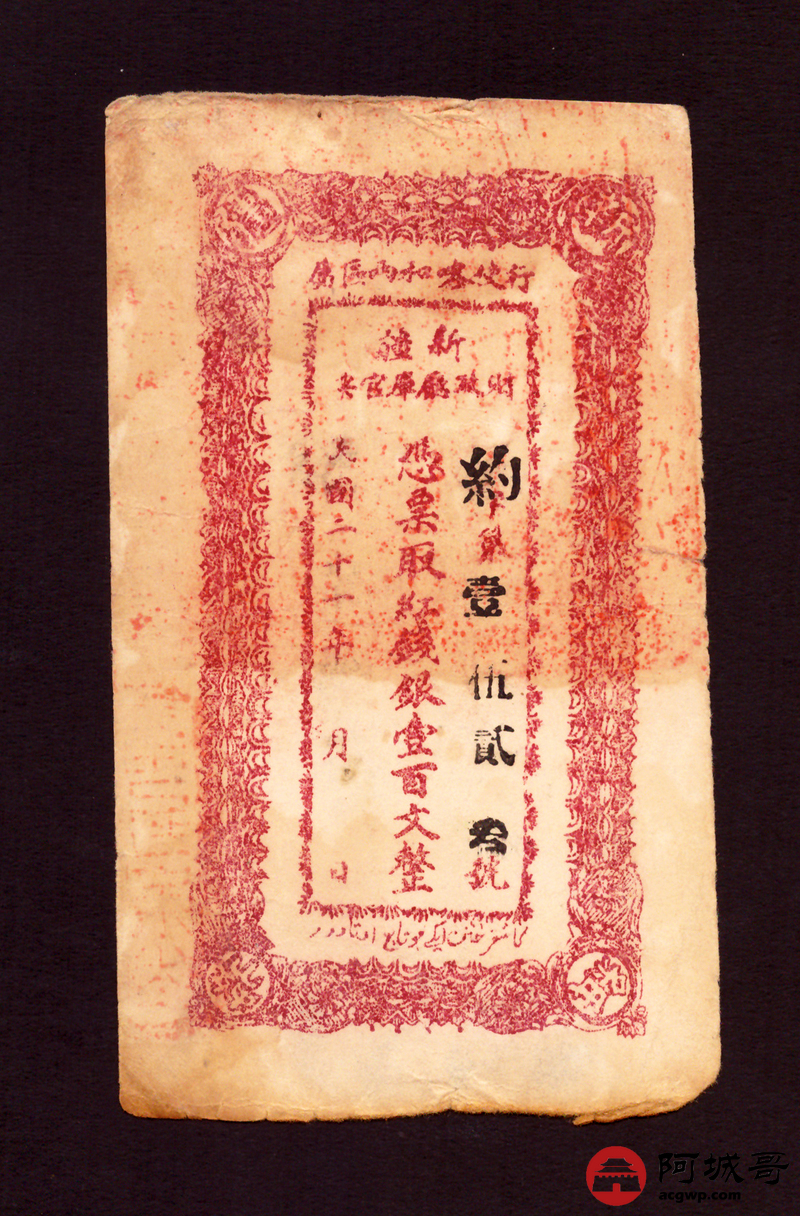 行使喀和兩區屬
新疆
財政廳庫官票
約字第壹伍貳號
憑票取紅錢銀壹百文整
民國二十一年 月 日
阿城哥
acgwp.com